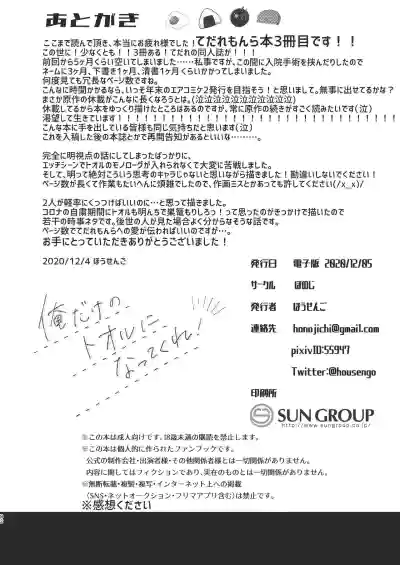 あとがき
ここまで読んで頂き、本当にお疲れ様でした！てだれもんら本3冊目です！！
この世に！少なくとも！！3冊ある！てだれの同人誌が！！！！
前回から5ヶ月くらい空いてしまいました……私事ですが、この間に入院手術を挟んだりしたので
ネームに3ヶ月、下書き1ヶ月、清書1ヶ月くらいかかってしまいました。
何度見ても冗長なページ数ですね。
こんなに時間かかるなら、いっそ年末のエアコミケ2発行を目指そう！と思いまして。無事に出せてるかな？
まさか原作の休載がこんなに長くなろうとは。(泣泣泣泣泣泣泣泣泣泣)
休載してるから本をゆっくり描けたところはあるのですが、常に原作の続きがすごく読みたいです(泣)
渇望して生きています！！！！！！！！！！！！！！！！！！！！！！！！！！！！！！！！
こんな本に手を出している皆様も同じ気持ちだと思います(泣)
これを入稿した後の本誌とかで再開告知があるといいな………。
完全に明視点の話にしてしまったばっかりに、
エッチシーンでトオルのモノローグが入れられなくて大変に苦戦しました。
そして、明って絶対こういう思考のキャラじゃないと思いながら描きました！勘違いしないでください！
ページ数が長くて作業もたいへんに煩雑でしたので、作画ミスとかあっても許してください(/x_x)/
2人が軽率にくっつけばいいのに…と思って描きました。
コロナの自粛期間にトオルも明んちで巣篭もりしろ！って思ったのがきっかけで描いたので
若干の時事ネタです。後世の人が見た場合よく分からなそうな話です。
ページ数でてだれもんらへの愛が伝わればいいのですが…。
お手にとっていただきありがとうございました！
2020/12/4 ほうせんご
俺だけの
トオルに
なってくれ！
発行日 電子版 2020/12/05
サークル ほのじ
発行者 ほうせんご
連絡先 honojichi@gmail.com
pixivID:55947
Twitter:@housengo
印刷所
SUN GROUP
http://www.sungroup.co.jp/
※この本は成人向けです。18歳未満の購読を禁止します。
※この本は個人的に作られたファンブックです。
公式の制作会社・出演者様・その他関係者様とは一切関係がありません。
内容に関してはフィクションであり、実在のものとは一切関係がありません。
※無断転載・複製・複写・インターネット上への掲載
（SNS・ネットオークション・フリマアプリ含む）は禁止です。
※感想ください